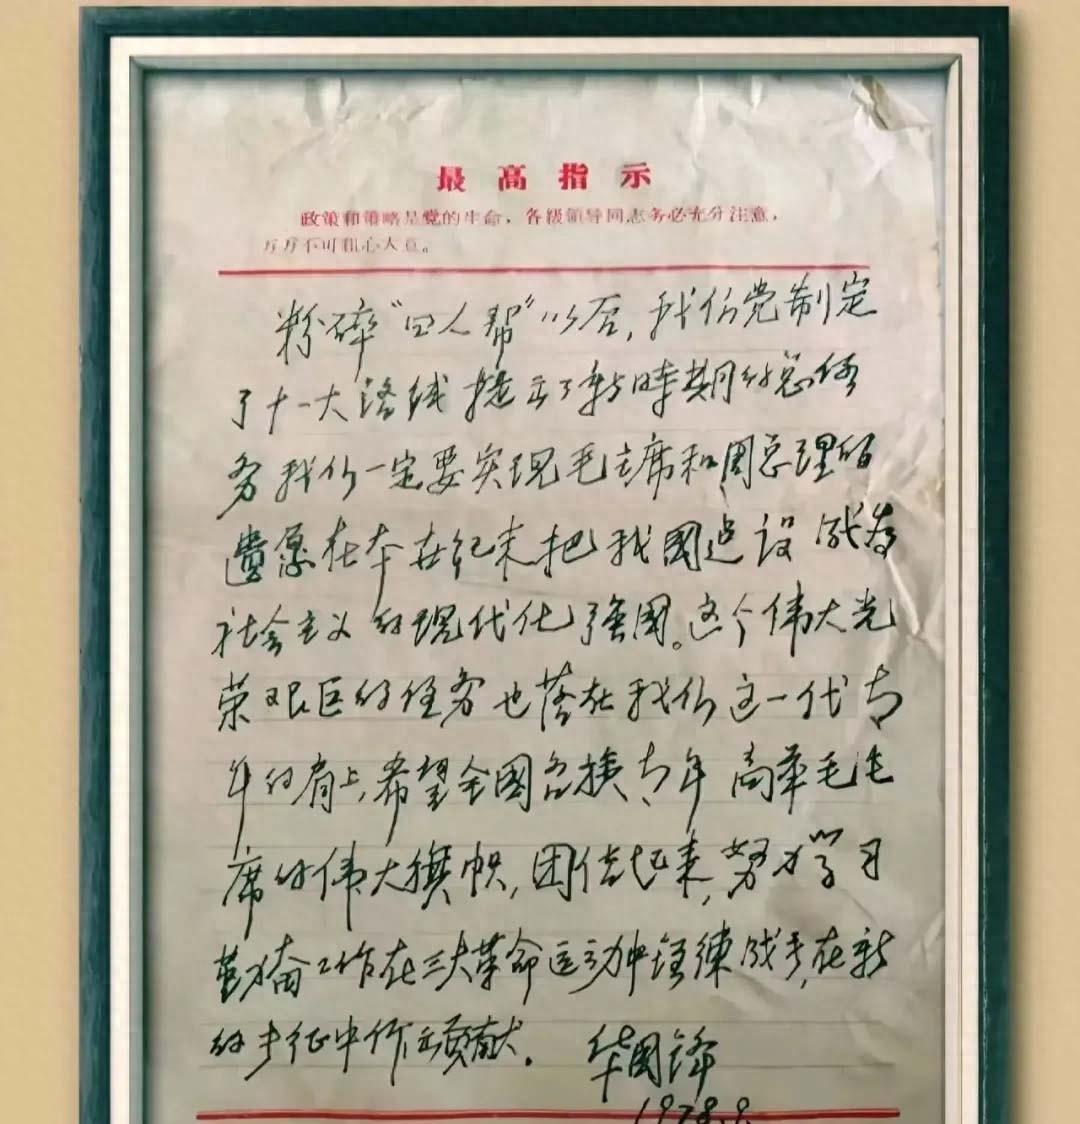 最高指示
政策和策略是党的生命，各级领导同志务必充分注意，
万万不可粗心大意。
粉碎“四人帮”以后，我们党制定
了十一大路线提出了新時期的总任
务我们一定要实现毛主席和周总理的
遗愿在本世纪末把我國建设成为
社会主义的现代化强國。这个伟大光
荣艰巨的任务也落在我们这一代青
年的肩上，希望全國各族青年高举毛主
席的伟大旗帜，团结起来，努力学习
勤奋工作在三大革命运动中锤練成长，在新
的长征中作出贡献。
华國锋
1978.9.